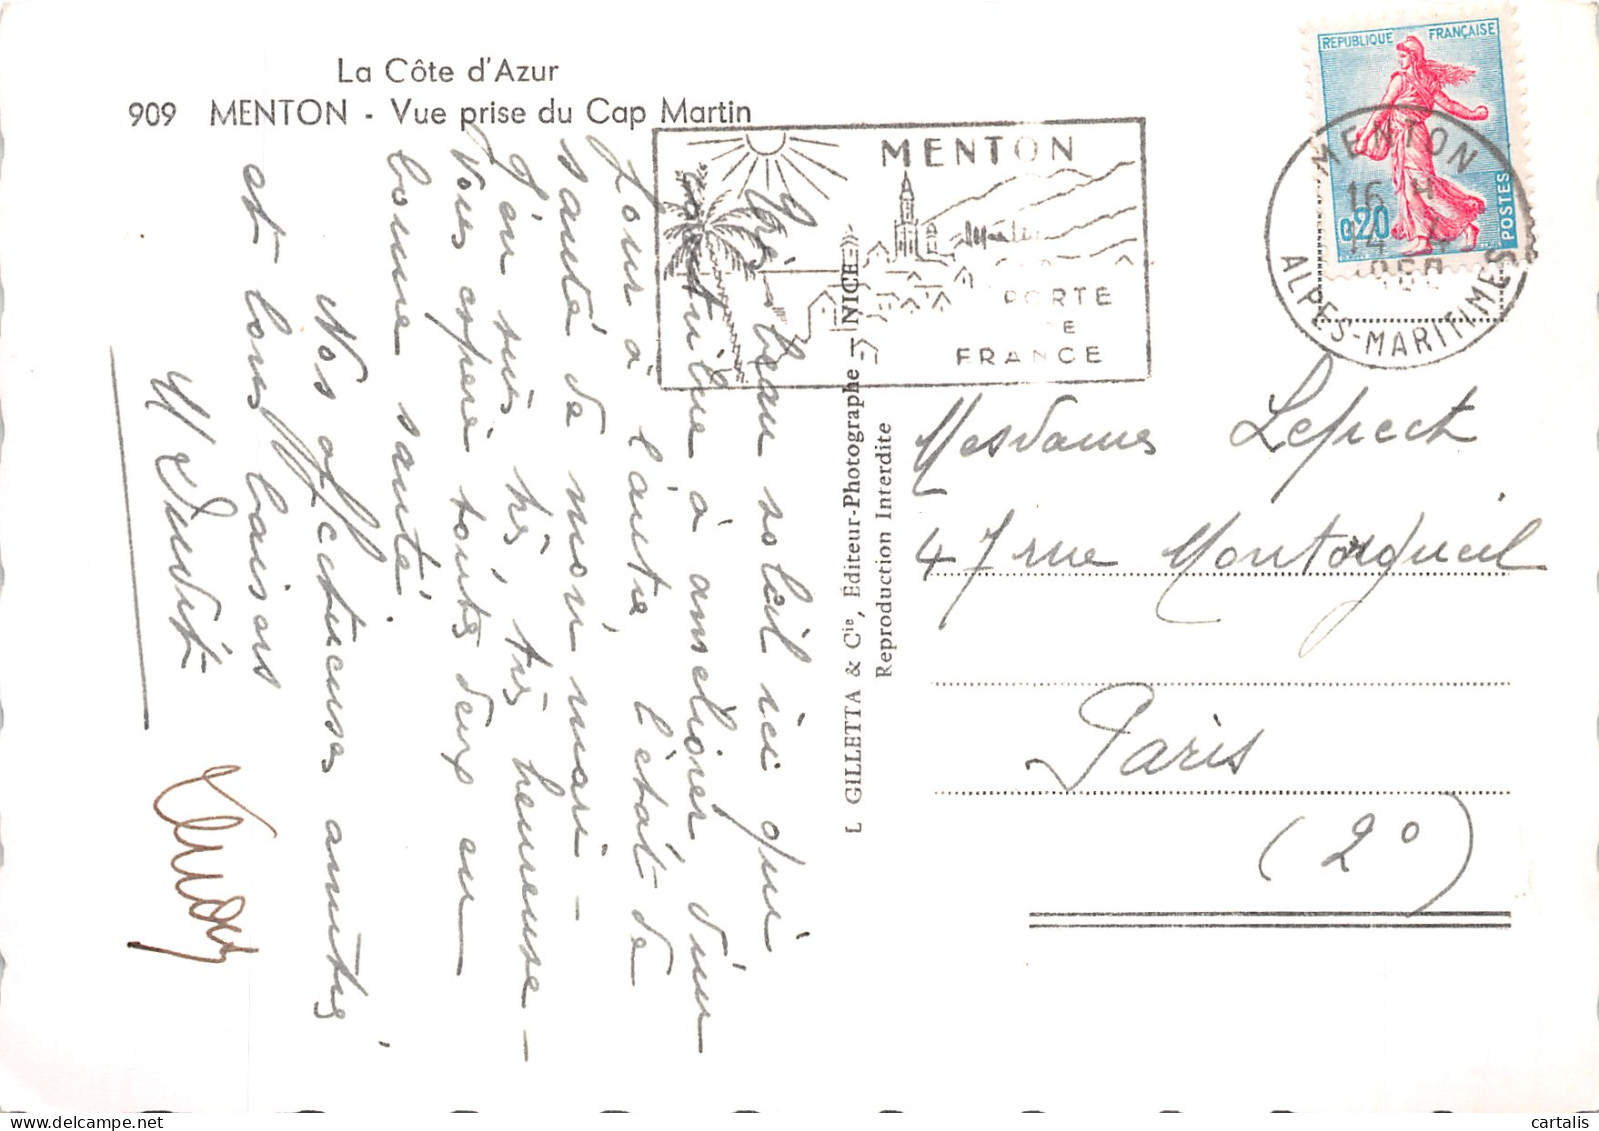 La Côte d'Azur
909 MENTON - Vue prise du Cap Martin
MENTON
PORTE
DE
FRANCE
REPUBLIQUE FRANÇAISE
0,20
POSTES
MENTON
16 H
14
ALPES-MARITIMES
Très beau soleil ici qui
continue à améliorer d'un
jour à l'autre, l'état de
santé de mon mari -
J'en suis très, très heureuse -
Vous espère toutes deux en
bonne santé.
Nos affectueuses amitiés
et bons baisers
L GILLETTA & Cie, Editeur-Photographe - NICE
Reproduction Interdite
Mesdames Lepreck
47 rue Montorgueil
Paris
(2°)
cartalis